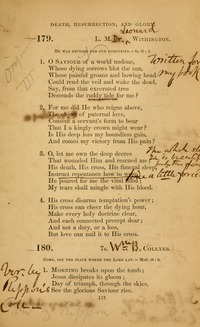 DEATH, RESURRECTION, AND GLORY.
Leonard
179. L. M. WITHINGTON.
HE WAS BRUISED FOR OUR INIQUITIES.
1. O SAVIOUR of a world undone,
Whose dying sorrows blot the sun,
Whose painful groans and bowing head
Could rend the veil and wake the dead,
Say, from that execrated tree
Descends the ruddy tide for me?
Written for my book
2. For me did He who reigns above,
The of paternal love,
Consent a servant's form to bear
That I a kingly crown might wear?
Is His deep loss my boundless gain,
And comes my victory from His pain?
3. O, let me own the deep decree
That wounded Him and rescued me
His death, His cross, His funeral
Instruct repentance how to
He poured for me the vital
My tears shall mingle with His blood.
4. His cross disarms temptation's power;
His cross can cheer the dying hour,
Make every holy doctrine clear,
And each connected precept dear;
And not a duty, or a loss,
His love can nail it to His cross.
180. 7s. Wm B. COLLYER.
COME, SEE THE PLACE WHERE THE LORD LAY.
1. MORNING breaks upon the tomb;
Jesus dissipates its gloom;
Day of triumph, through the skies,
See the glorious Saviour rise.
Ver. by
Rippon
131